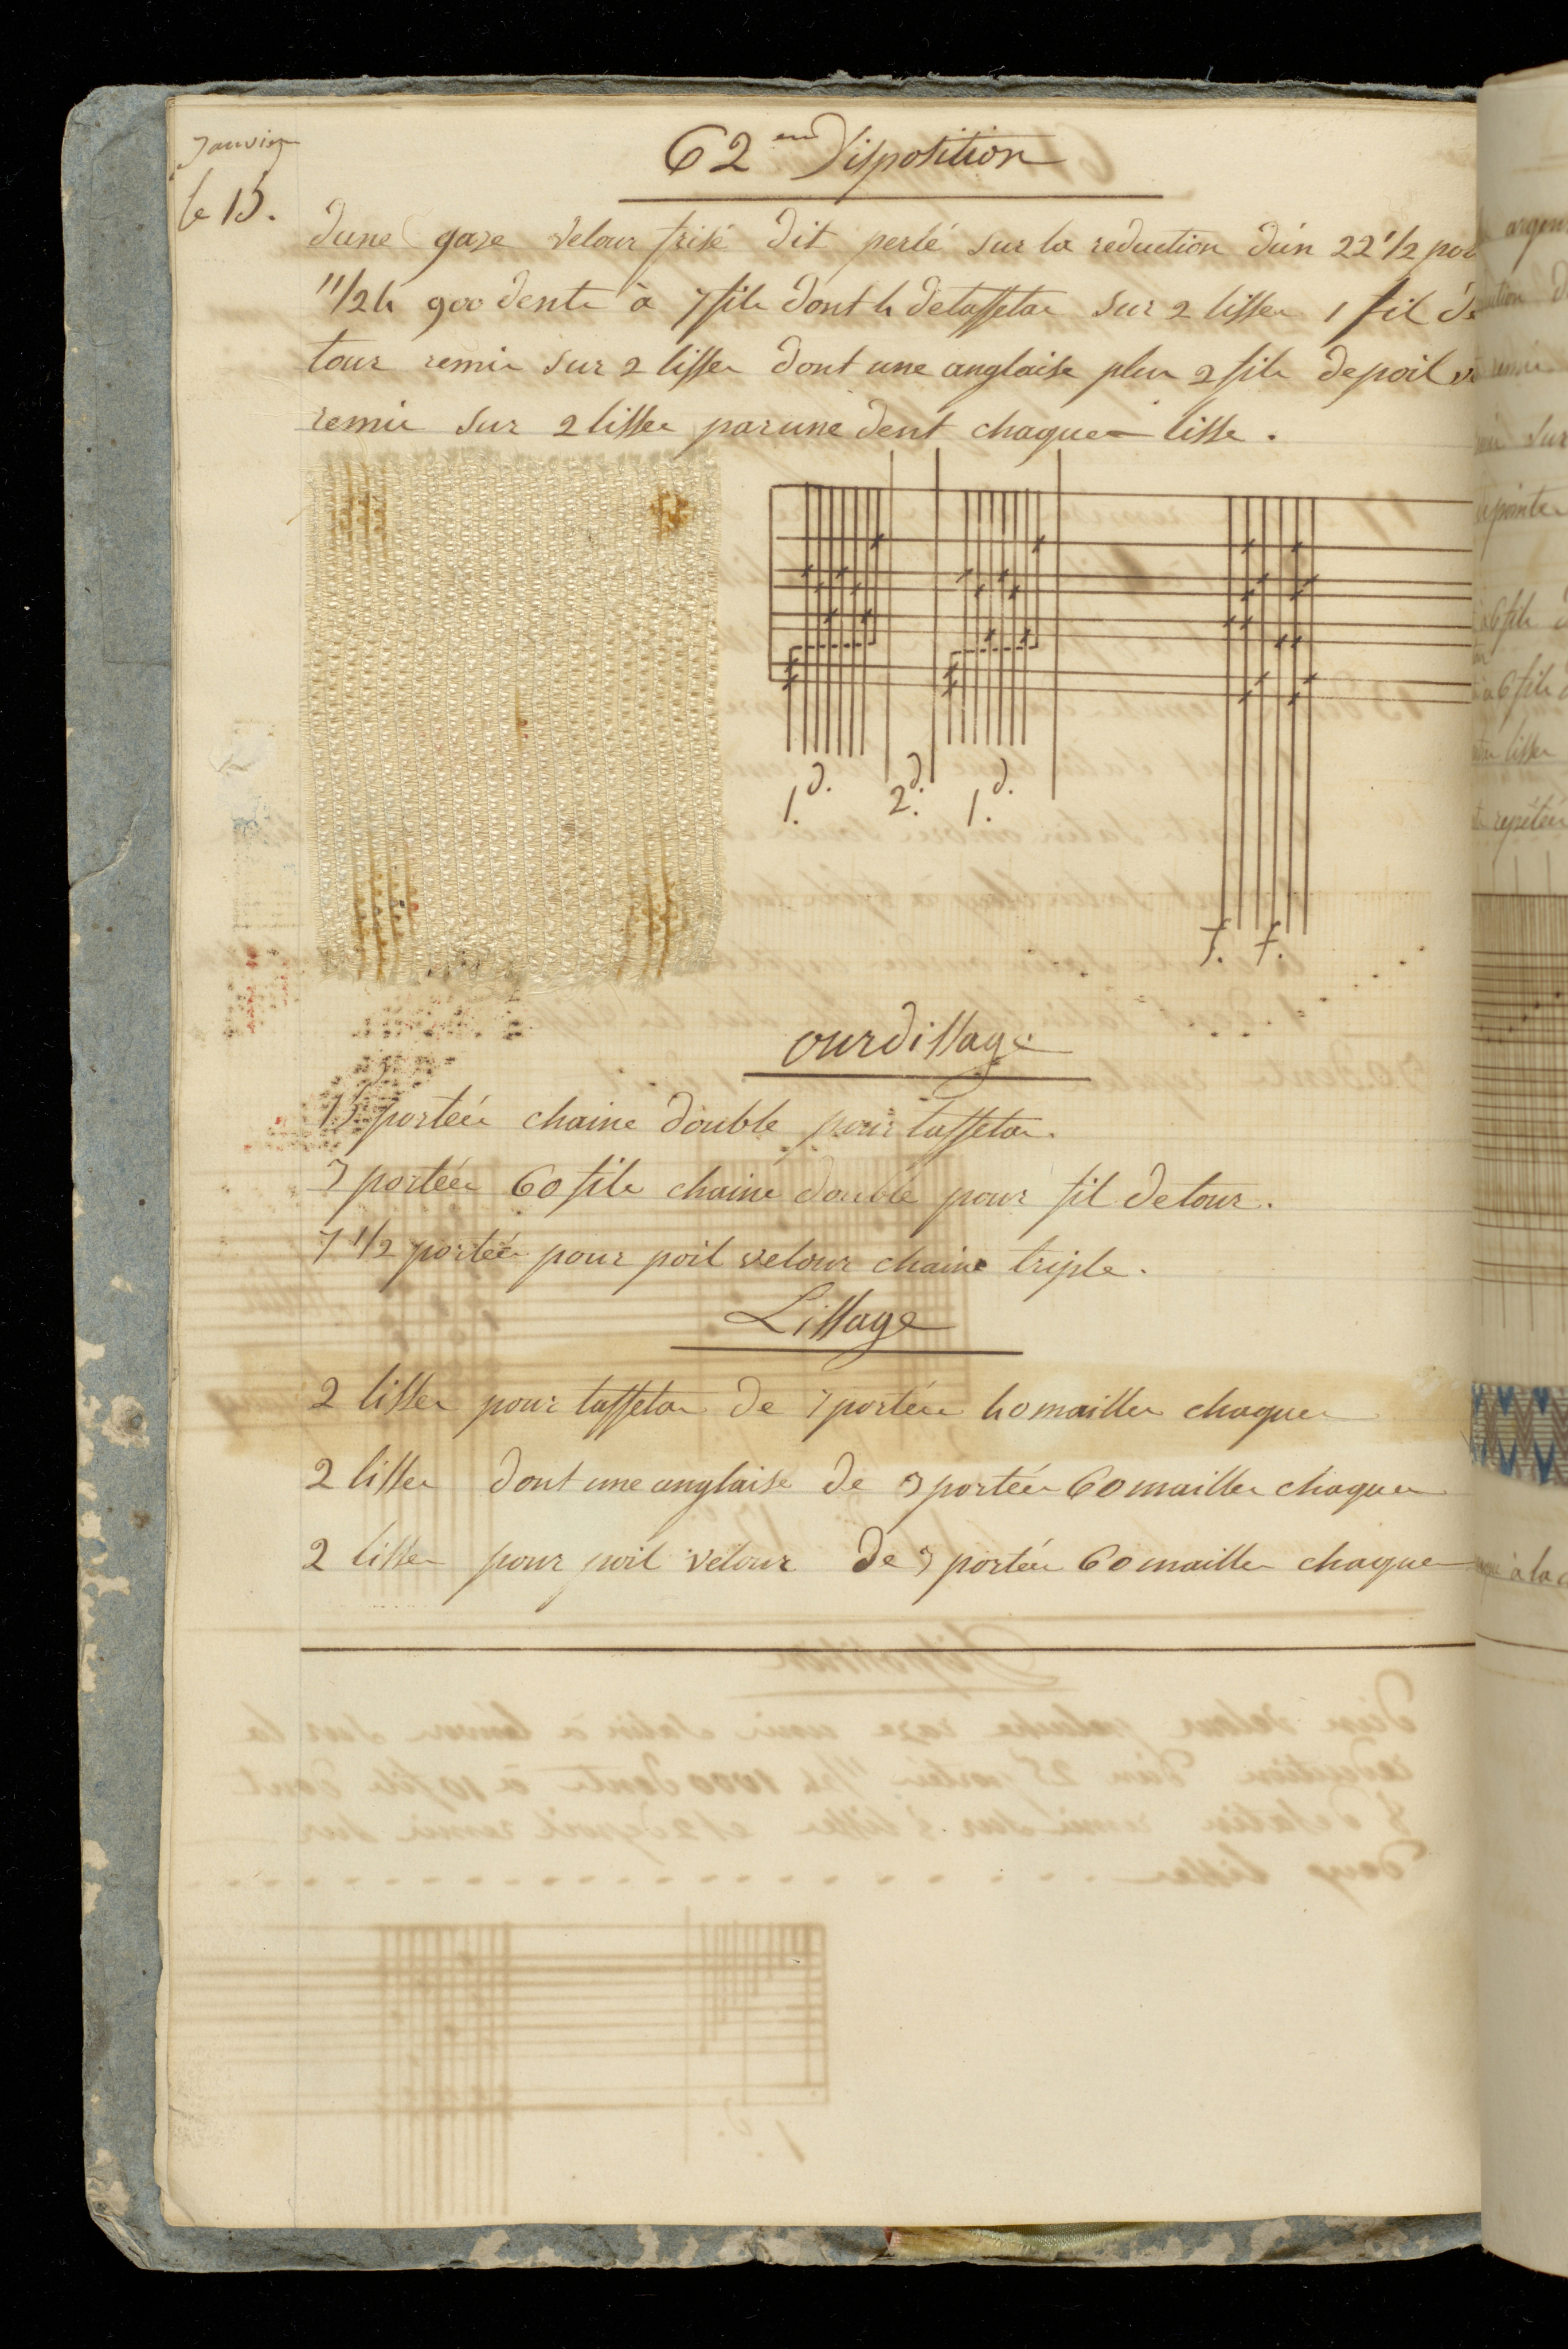 Janvier
le 15.
62 em Disposition
dune gaze velour frisé dit perlé sur la reduction dun 22 1/2 por
11/24 900 dents à 7 fils dont 4 de taffetas sur 2 lisses 1 fil de
tour remis sur 2 lisses dont une anglaise plus 2 fils de poil
remis sur 2 lisses par une dent chaques lisse.
1. d. 2. d. 1. d.
f. f.
ourdissage
15 portées chaine double pour taffetas.
3 portées 60 fils chaine double pour fil de tour.
7 1/2 portées pour poil velour chaine triple.
Lissage
2 lisses pour taffetas de 7 portées 40 mailles chaques
2 lisses dont une anglaise de 3 portées 60 mailles chaques
2 lisses pour poil velour de 3 portées 60 mailles chaques